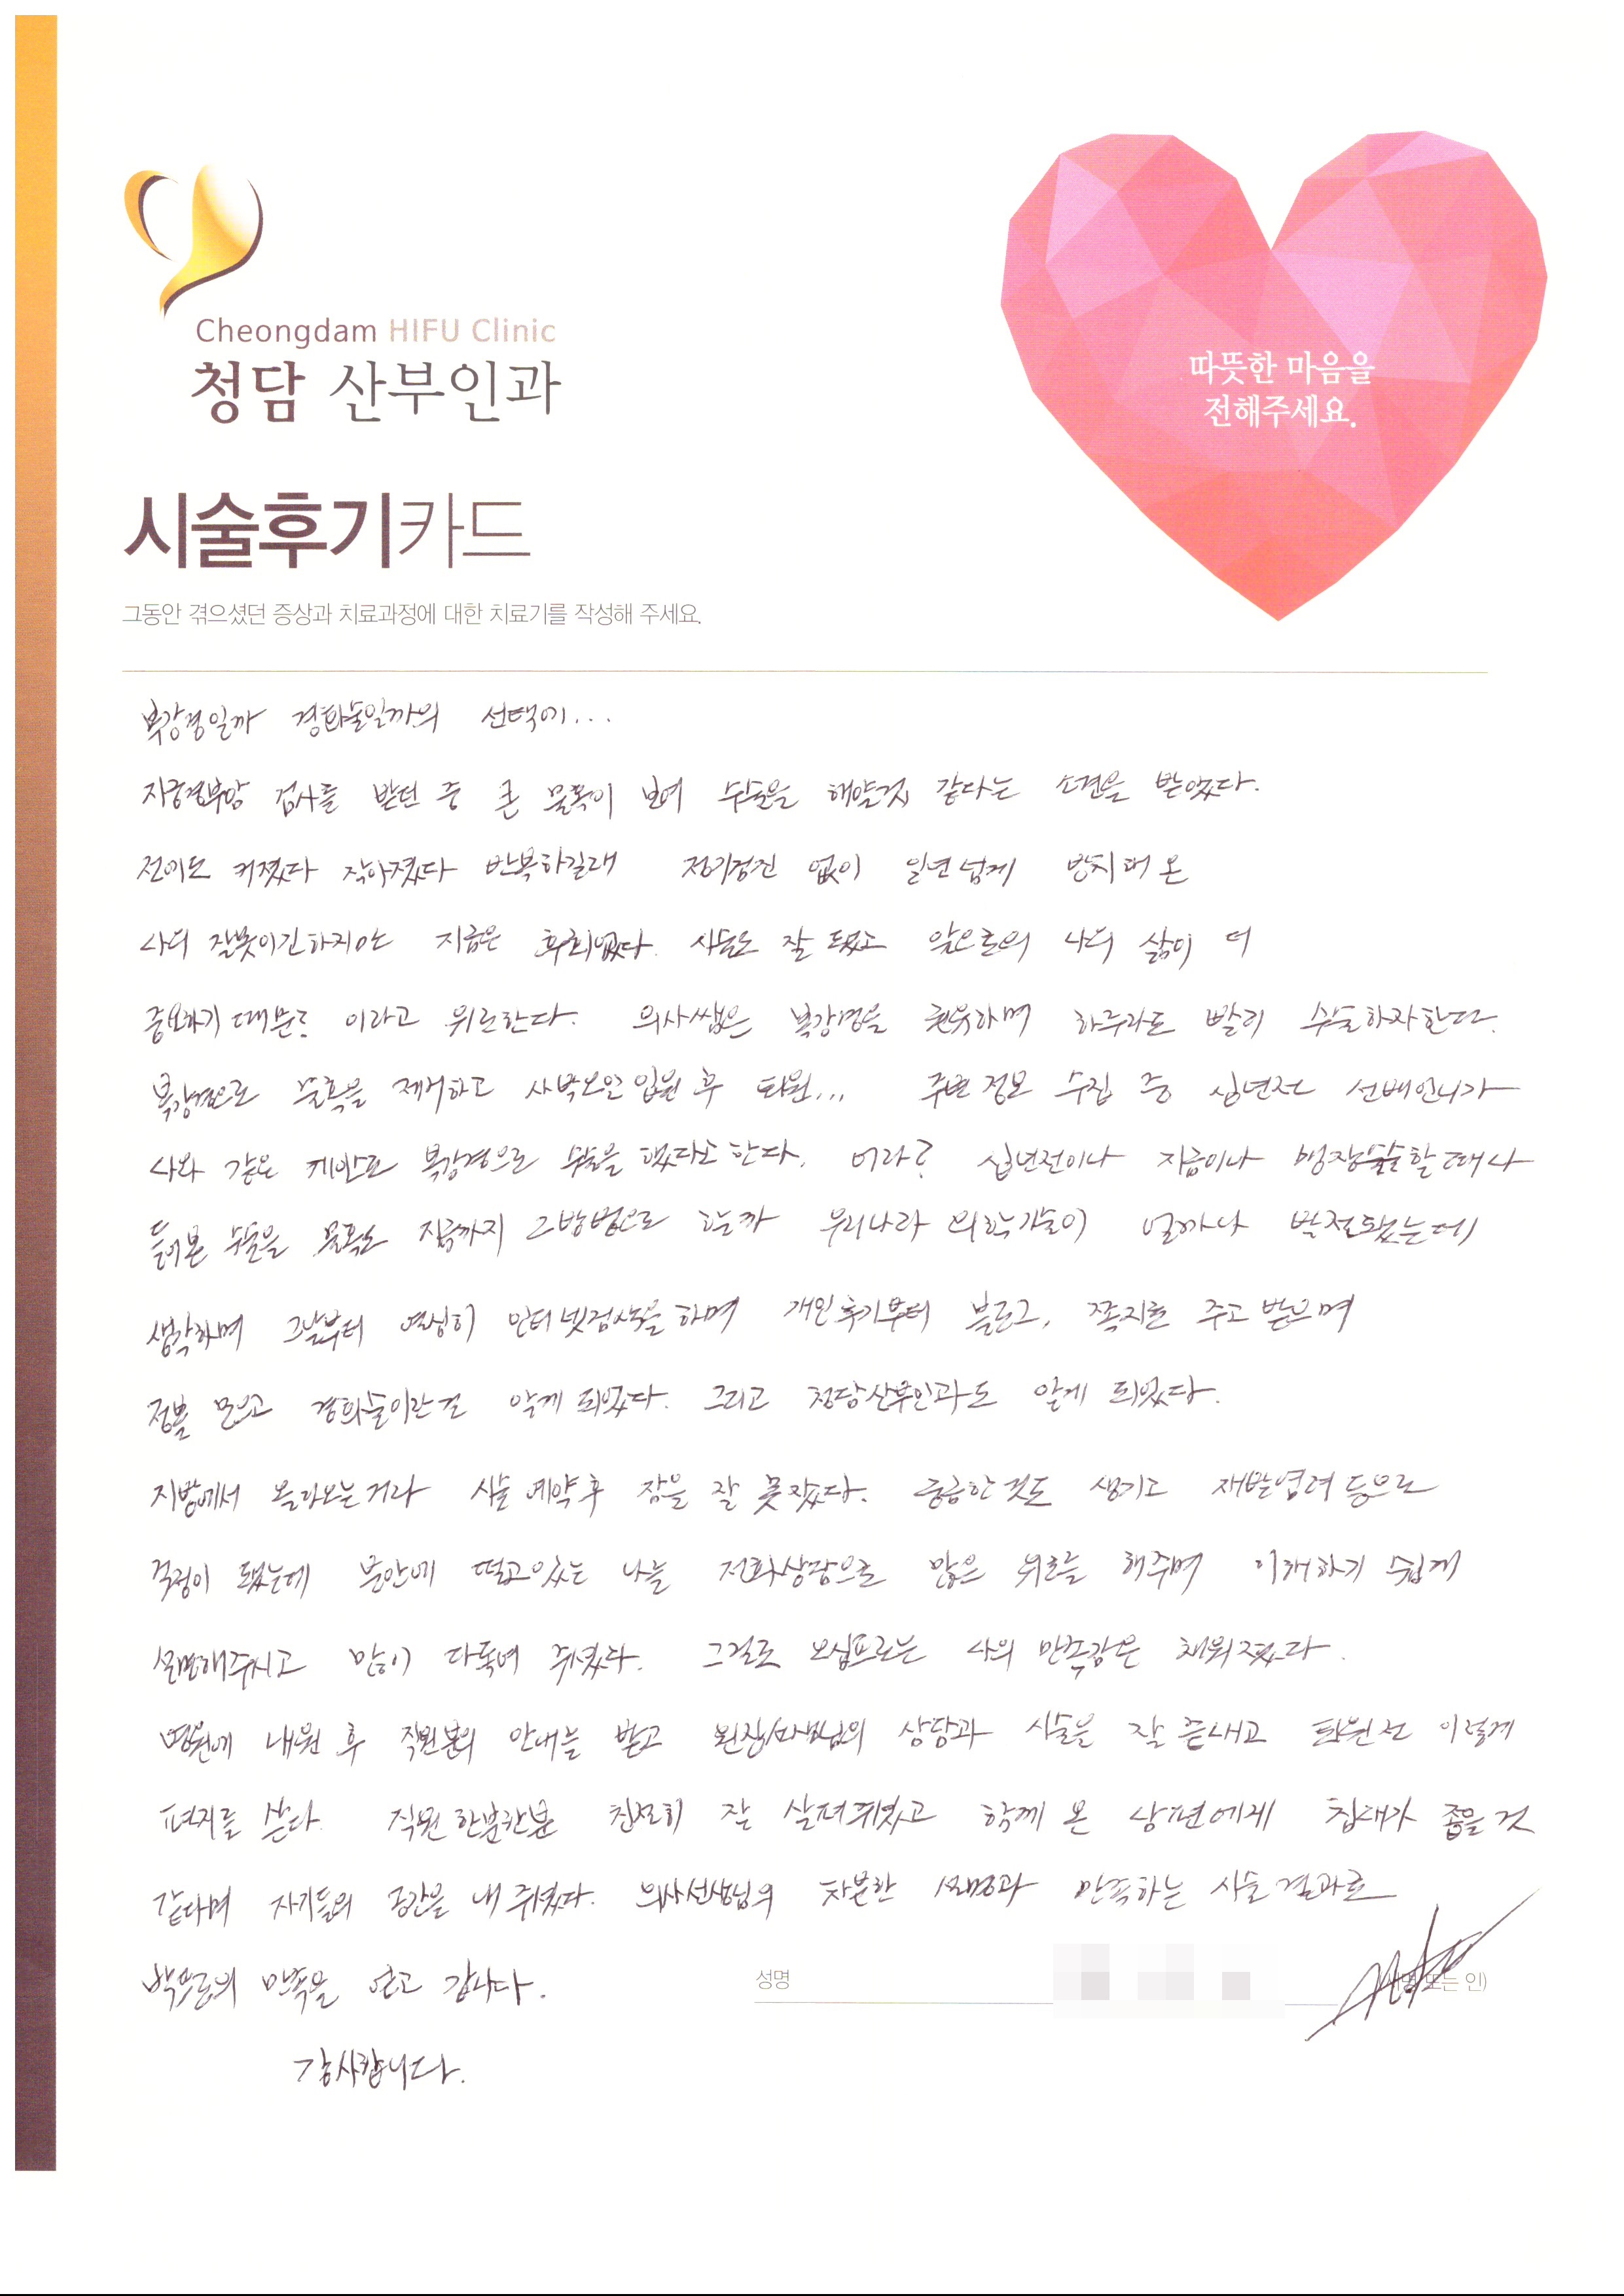 Cheongdam HIFU Clinic
청담 산부인과
따뜻한 마음을
전해주세요.
시술후기카드
그동안 겪으셨던 증상과 치료과정에 대한 치료기를 작성해 주세요.
복강경일까 경화술일까의 선택에...
자궁경부암 검사를 받던 중 큰 물혹이 보여 수술을 해야할것 같다는 소견을 받았다.
전에도 커졌다 작아졌다 반복하길래 정기검진 없이 일년넘게 방치해 온
나의 잘못이긴하지만 지금은 후회없다. 시술도 잘 됐고 앞으로의 나의 삶이 더
중요하기 때문? 이라고 위로한다. 의사쌤은 복강경을 권유하며 하루라도 빨리 수술하자한다.
복강경으로 물혹을 제거하고 사박오일 입원 후 퇴원... 주변 정보 수집 중 십년전 선배언니가
나와 같은 케이스로 복강경으로 수술을 했다고 한다. 어라? 십년전이나 지금이나 맹장수술할때나
들어본 수술을 물혹도 지금까지 그방법으로 할까 우리나라 의학기술이 얼마나 발전됐는데
생각하며 그날부터 열심히 인터넷검색을 하며 개인후기부터 블로그, 쪽지를 주고 받으며
정보 모으고 경화술이란걸 알게 되었다. 그리고 청담산부인과도 알게 되었다.
지방에서 올라오는거라 시술 예약 후 잠을 잘 못잤다. 궁금한 것도 생기고 재발염려 등으로
걱정이 됐는데 불안에 떨고있는 나를 전화상담으로 많은 위로를 해주며 이해하기 쉽게
설명해주시고 많이 다독여 주셨다. 그걸로 오십프로는 나의 만족감은 채워졌다.
병원에 내원 후 직원분의 안내를 받고 원장선생님의 상담과 시술을 잘 끝내고 퇴원전 이렇게
편지를 쓴다. 직원 한분한분 친절히 잘 살펴주셨고 함께 온 남편에게 침대가 좁을 것
같다며 자기들의 공간을 내 주셨다. 의사선생님의 차분한 설명과 만족하는 시술결과로
백프로의 만족을 얻고 갑니다.
성명
또는 인)
감사합니다.